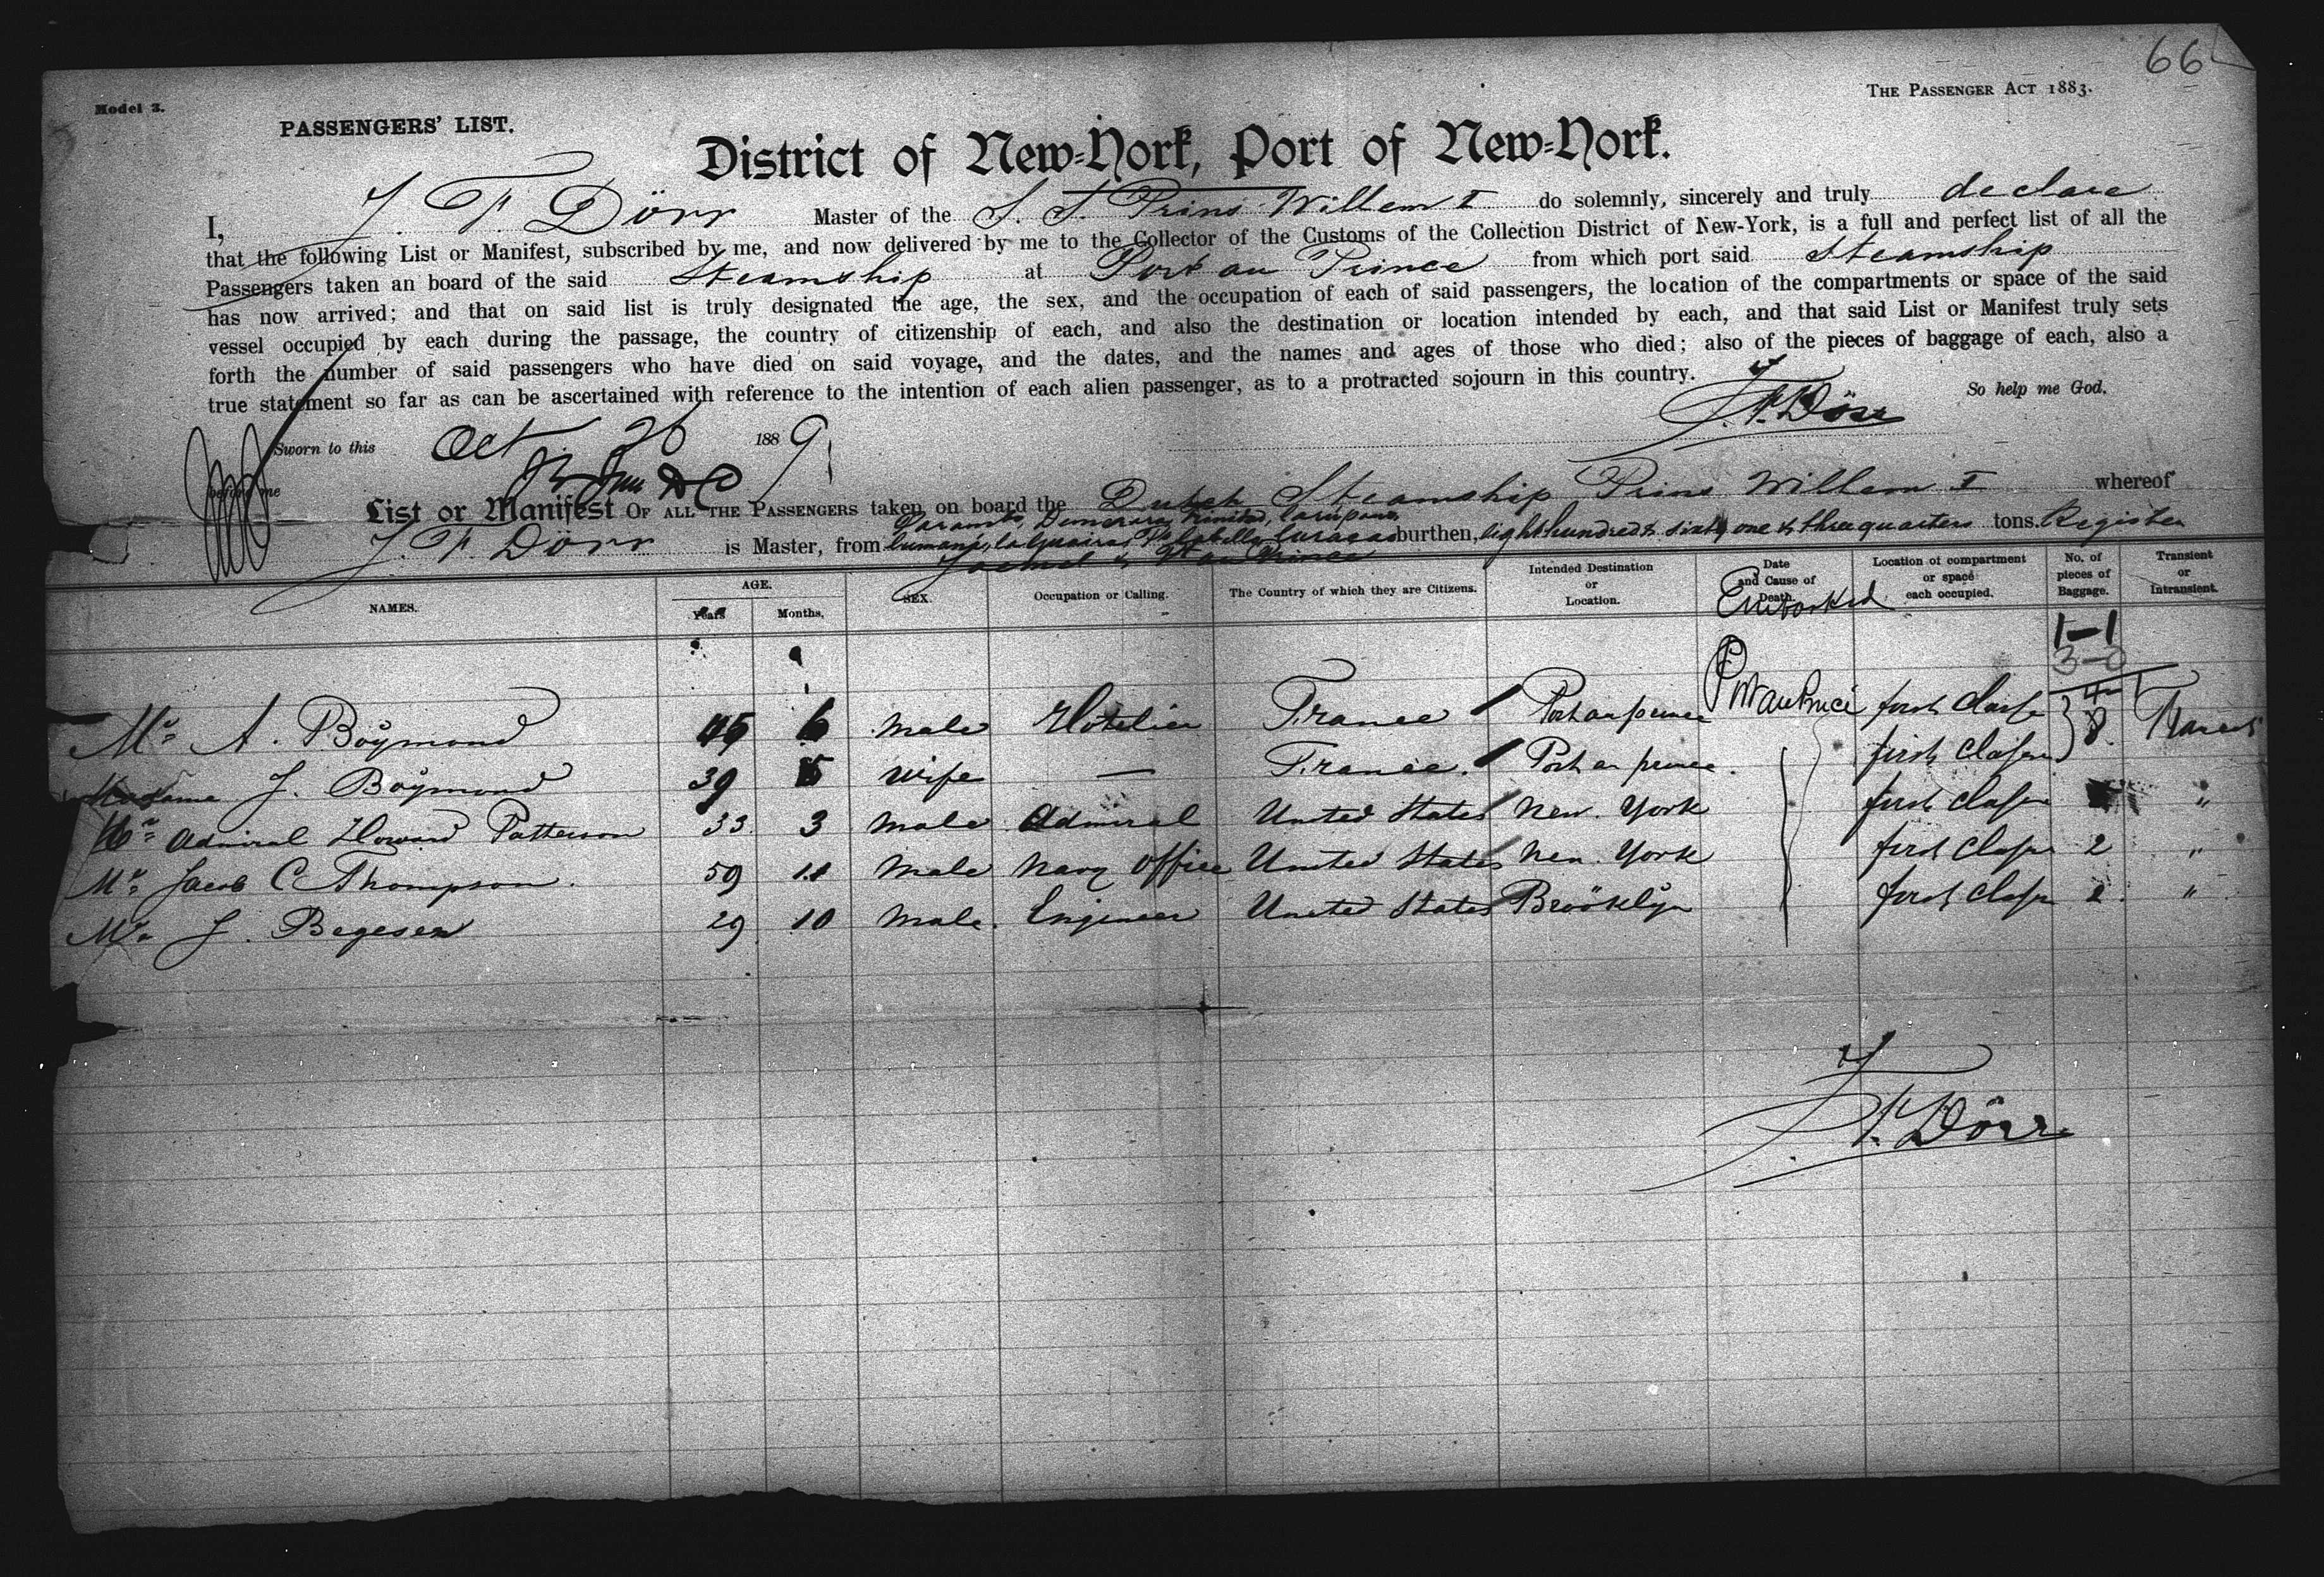 66
Model 3.
THE PASSENGER ACT 1883.
PASSENGERS' LIST.
District of New-York, Port of New-York.
I, J. F. Dörr Master of the S. S. Prins Willem I do solemnly, sincerely and truly declare
that the following List or Manifest, subscribed by me, and now delivered by me to the Collector of the Customs of the Collection District of New-York, is a full and perfect list of all the
Passengers taken an board of the said Steamship at Port au Prince from which port said Steamship
has now arrived; and that on said list is truly designated the age, the sex, and the occupation of each of said passengers, the location of the compartments or space of the said
vessel occupied by each during the passage, the country of citizenship of each, and also the destination or location intended by each, and that said List or Manifest truly sets
forth the number of said passengers who have died on said voyage, and the dates, and the names and ages of those who died; also of the pieces of baggage of each, also a
true statement so far as can be ascertained with reference to the intention of each alien passenger, as to a protracted sojourn in this country.
So help me God.
J. F. Dörr
Sworn to this Oct 26 1889
before me
List or Manifest OF ALL THE PASSENGERS taken on board the Dutch Steamship Prins Willem I whereof
Parambo, Demerara, Trinidad, Carupano,
J. F. Dörr is Master, from Cumana, La Guaira, Pto Cabello, Curacao burthen, Eight hundred & sixty one & three quarters tons. Register
Jacmel & Pt au Prince
NAMES. AGE. Years Months. SEX. Occupation or Calling. The Country of which they are Citizens. Intended Destination or Location. Date and Cause of Death. Embarked Location of compartment or space each occupied. No. of pieces of Baggage. Transient or Intransient.
1-1
3-0
4
Mr A. Böymond 45 6 male Hotelier France Port au prince Port au Prince first Classe 8 Transit
Madame J. Böymond 39 5 wife — France. Port au prince. first Classe
Mr Admiral Howard Patterson 33 3 male Admiral United States New. York first Classe "
Mr Jacob C Thompson. 59 11 male Navy Office United States New. York first Classe 2 "
Mr J. Begesen 29 10 male. Engineer United States Bröoklyn first Classe 2. "
J. F. Dörr